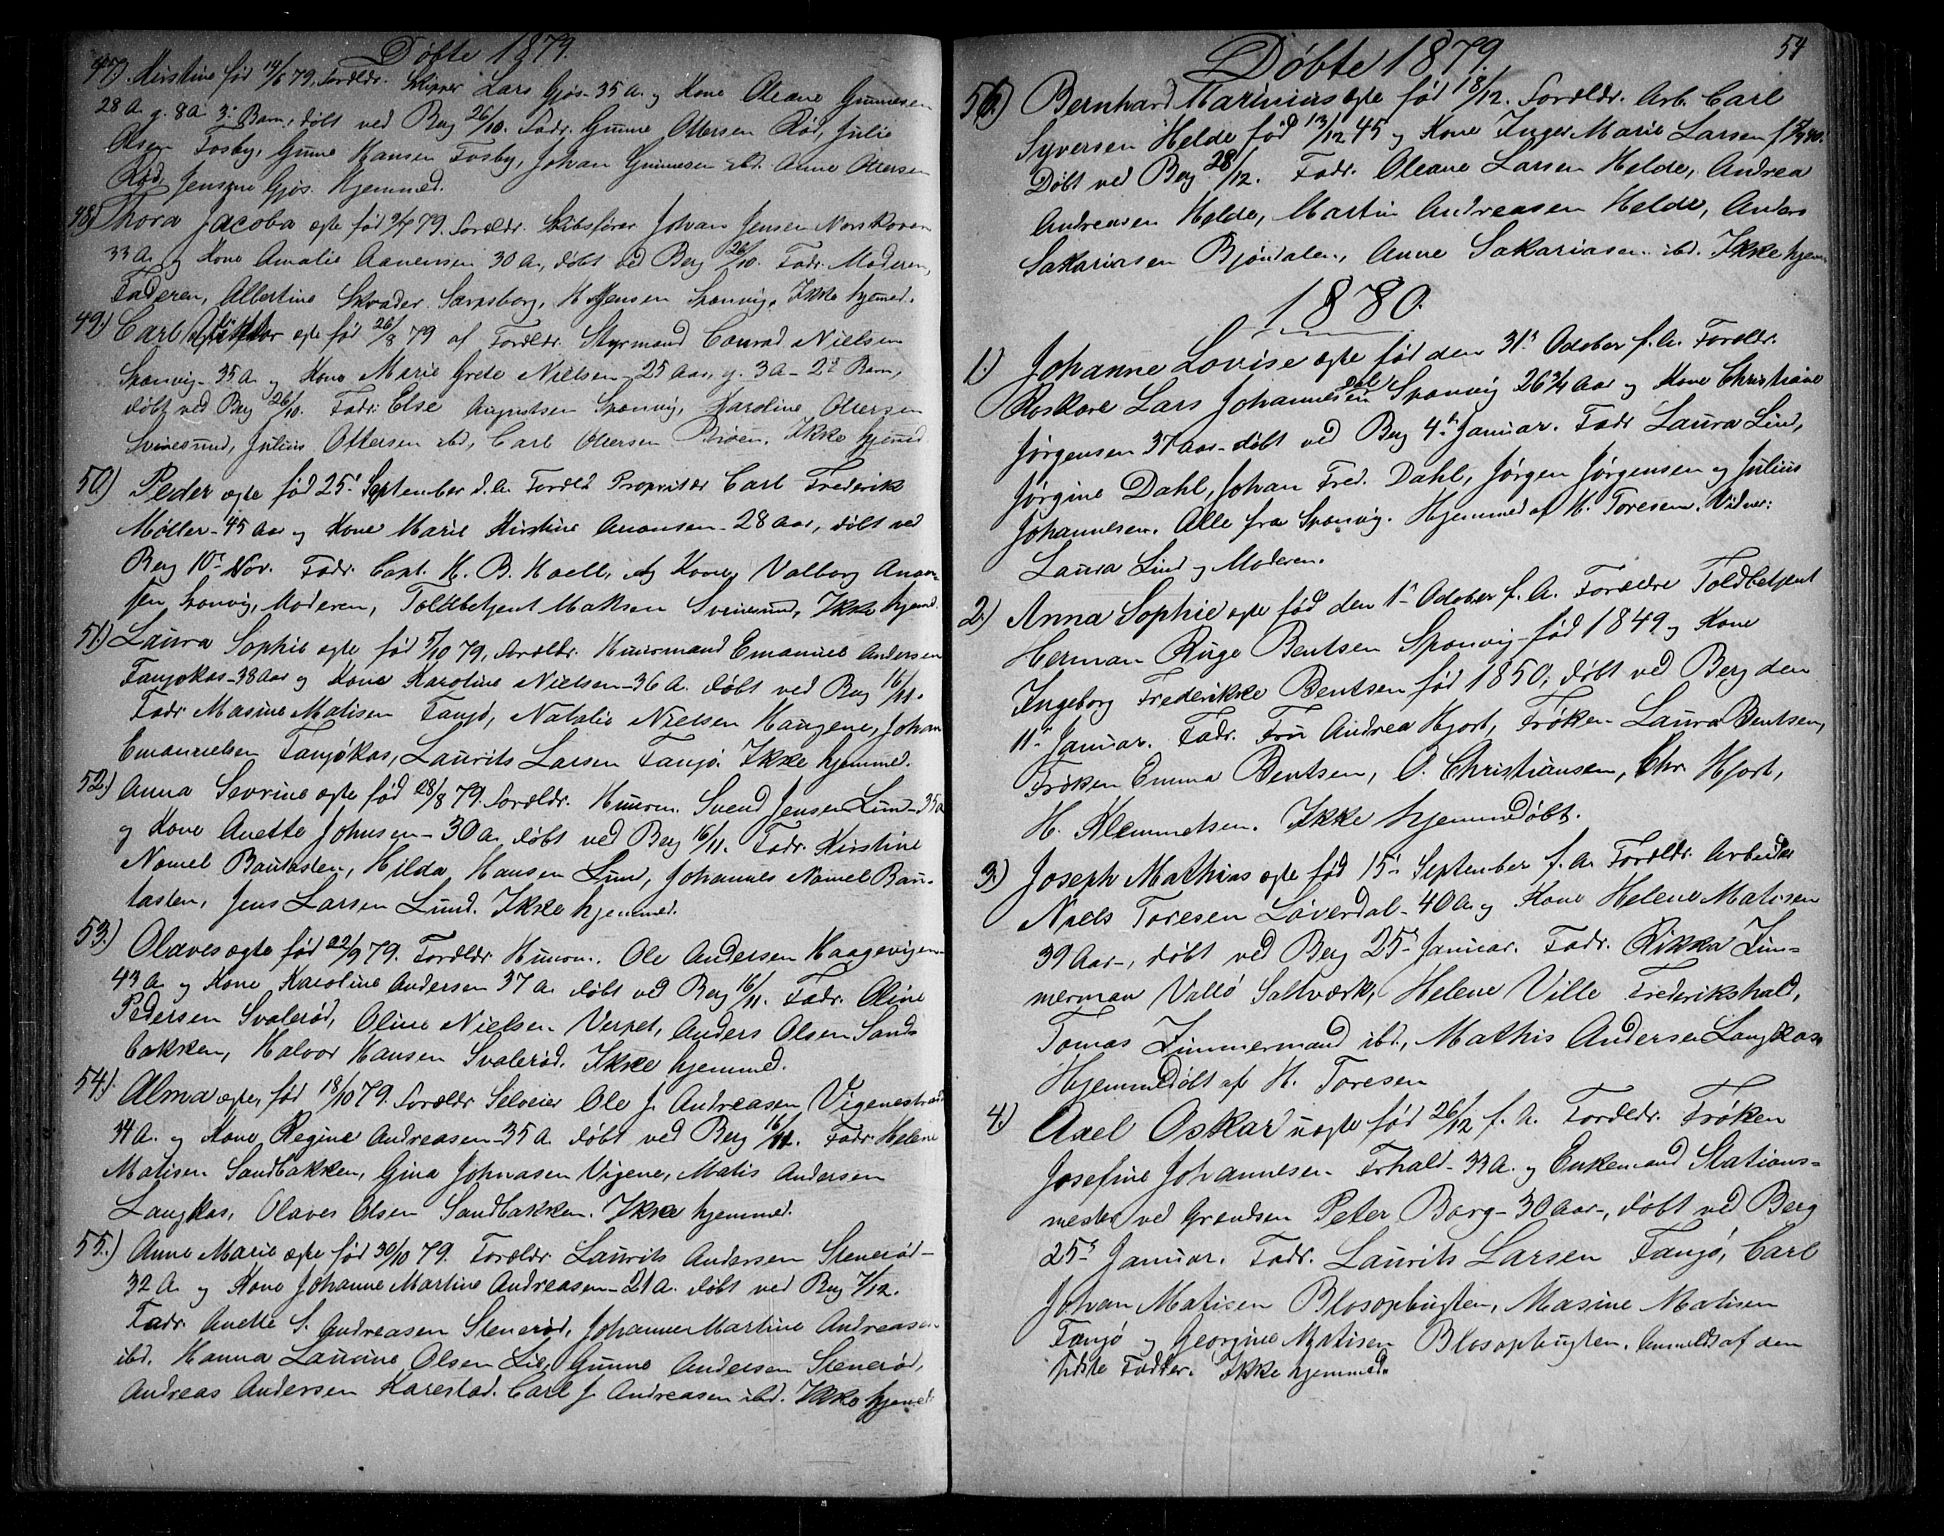 Döbte 1879.
47). Kirstine född 14/5 79, Foreldr. Skipper Lars Gjøs - 35 A. og Kone Oleane Gunnesen
28 A. g. 8 A. 3. Barn, døbt ved Berg 26/10. Fadr. Gunne Ottersen Rød, Julie
Olsen Fosby, Gune Hansen Fosby, Johan Gunnesen ibd. Anne Ottersen
Rød, Jensine Gjøs. Hjemmed.
48) Thora Jacoba egte fød 2/7 79. Foreldr. Skibsfører Johan Jensen Norskoven
33 A. og Kone Amalie Aanensen 30 A., døbt ved Berg 26/10. Fadr. Moderen,
Faderen, Albertine Skvader Sarpsborg, H. Jensen Sponvig. Ikke hjemmed.
49.) Carl egte fød 26/8 79 af Foreldr. Styrmand Conrad Nielsen
Sponvig - 35 A. og Kone Marie Grete Nielsen - 25 Aar, g. 3 A - 2d Barn,
døbt ved Berg 26/10. Fadr: Else Augustsen Sponvig, Karoline Ottersen
Svinesund, Julius Ottersen ibd, Carl Ottersen Ikke hjemmed
50) Peder egte fød 25' September d. A. Foreld Proprietær Carl Frederik
Møller - 45 Aar og Kone Marie Kirstine Anonsen - 28 Aar, døbt ved
Berg 10' Nov. Fadr. Capt. K. B. og Kone, Valborg Anon-
sen Sponvig, Moderen, Toldbetjent Maksen Svinesund, Ikke hjemd.
51.) Laura Sophie egte fød 5/10 79, Foreldr. Huusmand Emanuel Andersen
Fangøkas - 38 Aar og Kone Karoline Nielsen - 36 A. døbt ved Berg 16/11.
Fadr Masine Matisen Tangø, Natalie Nielsen Haugene, Johan
Emanuelsen Tangøkas, Laurits Larsen Tangø. Ikke hjemmed.
52.) Anna Sevrine egte fød 28/8 79. Foreldr. Huusm. Svend Jensen Lund - 35 A
og Kone Anette Johnsen - 30 A, døbt ved Berg 16/11. Fadr. Kirstine
Nomel Bautasten, Hilda Hansen Lund, Johannes Nomel Bau-
tasten, Jens Larsen Lund. Ikke hjemmed.
53.) Olaves egte fød 22/9 79. Foreldr. Husm. Ole Andersen Haagevigen -
43 A. og Kone Karoline Andersen 37 A. døbt ved Berg 16/11. Fadr. Oline
Pedersen Svalerød, Oline Nielsen Verpet, Anders Olsen Sand-
bakken, Halvor Hansen Svalerød. Ikke hjemmed.
54). Alma egte, fød 18/10 79. Foreldr Selveier Ole J. Andreasen Vigenestrand
34 A. og Kone Regine Andreasen - 35 A. døbt ved Berg 16/11. Fadr. Helene
Matisen Sandbakken, Gina Johnasen Vigene, Matis Andersen
Langkas, Olaves Olsen Sandbakken. Ikke hjemmed.
55.) Anne Marie egte fød 30/10 79. Foreldr. Laurits Andersen Stenerød -
32 A. og Kone Johanne Martine Andreasen - 21 A. døbt ved Berg 7/12.
Fadr Anette S. Andreasen Stenerød, Johanne Martine Andreasen
ibd. Hanna Laurine Olsen Lie, Gunne Andersen Stenerød,
Andreas Andersen Karestad. Carl J. Andreasen ibd. Ikke hjemmed
54
Döbte 1879.
56) Bernhard Marinius egte fød 18/12. Foreldr. Arb. Carl
Syversen Helde fød 13/12 45 og Kone Inger Marie Larsen f.
Døbt ved Berg 28/12. Fadr. Oleane Larsen Helde, Andrea
Andreasen Helde, Martin Andreasen Helde, Anders
Sakariasen Bjørndalen, Anne Sakariasen ibd. Ikke hjem.
1880.
1.) Johanne Lovise egte fød den 31' October f. A. Foreldr.
Roskare Lars Johannesen Sponvig 26 3/4 Aar og Kone Christiane
Jørgensen 37 Aar - døbt ved Berg 4' Januar. Fadr Laura Lind,
Jørgine Dahl, Johan Fred. Dahl, Jørgen Jørgensen og Julius
Johannesen. Alle fra Sponvig. Hjemmed af H. Toresen. Vidner:
Laura Lind og Moderen.
2.) Anna Sophie egte fød den 1' October f. A. Foreldre Toldbetjent
Herman Ruge Bentsen Sponvig - fød 1849 og Kone
Ingeborg Frederikke Bentsen fød 1850; døbt ved Berg den
11' Januar. Fadr. Fru Andrea Hjort, Frøken Laura Bentsen,
Frøken Emma Bentsen, O. Christiansen, Chr. Hjort,
H. Klemmetsen. Ikke hjemmedøbt.
3.) Joseph Mathias egte fød 15' September f. A. Foreldr. Arbeider
Niels Toresen Løverdal - 40 A. og Kone Helene Matisen
39 Aar -, døbt ved Berg 25' Januar. Fadr. Rikka Zim-
merman Vallø Saltværk, Helene Ville Frederikshald,
Tomas Zimmermand ibd., Mathis Andersen Langkas.
Hjemmedøbt af H. Toresen
4.) Axel Oskar uegte fød 26/12 f. A. Foreldr. Frøken
Josefine Johannesen Frhald - 33 A. og Enkemand Stations-
mester ved Grendsen Peter Borg - 30 Aar -, døbt ved Berg
25' Januar. Fadr. Laurits Larsen Tangø, Carl
Johan Matisen Blosopbugten, Masine Matisen
Tangø og Georgine Matisen Blosopbugten. Anmeldt af den
sidste Fadder. Ikke hjemmed.